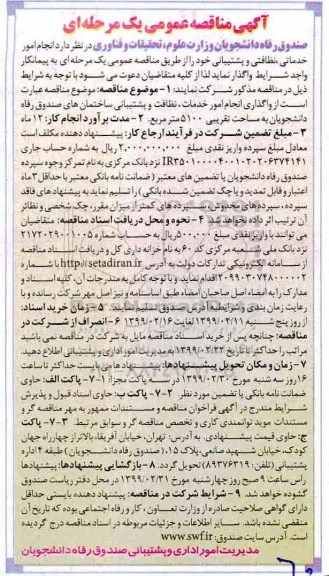 آگهی مناقصه عمومی یک مرحله ای
صندوق رفاه دانشجویان وزارت علوم، تحقیقات و فناوری در نظر دارد انجام امور
خدماتی، نظافتی و پشتیبانی خود را از طریق مناقصه عمومی یک مرحله ای به پیمانکار
واجد شرایط واگذار نماید لذا از کلیه متقاضیان دعوت می شود با توجه به شرایط
ذیل در مناقصه مذکور شرکت نمایند: ۱- موضوع مناقصه: موضوع مناقصه عبارت
است از واگذاری انجام امور خدمات، نظافت و پشتیبانی ساختمان های صندوق رفاه
دانشجویان به مساحت تقریبی ۵۱۰۰ متر مربع. ۲- مدت برآورد انجام کار: ۱۲ ماه
۳- مبلغ تضمین شرکت در فرآیند ارجاع کار: پیشنهاد دهنده مکلف است
معادل مبلغ سپرده واریز نقدی مبلغ ۲,۰۰۰,۰۰۰,۰۰۰ ریال به شماره حساب جاری
نزد بانک مرکزی به نام تمرکز وجوه سپرده
صندوق رفاه دانشجویان یا تضمین های معتبر (ضمانت نامه بانکی معتبر با حداقل ۳ ماه
اعتبار و قابل تمدید و یا چک تضمین شده بانکی) را تسلیم نماید به پیشنهاد های فاقد
سپرده، سپرده های مخدوش، سپرده های کمتر از میزان مقرر، چک شخصی و نظائر
آن ترتیب اثر داده نخواهد شد. ۴- نحوه و محل دریافت اسناد مناقصه: متقاضیان
می توانند با واریز نقدی مبلغ ۵۰۰,۰۰۰ ریال به حساب شماره ۲۱۷۲۰۲۹۰۰۱۰۰۵
نزد بانک ملی شعبه مرکزی کد ۶۰ به نام خزانه داری کل و دریافت اسناد مناقصه
از سامانه الکترونیکی تدارکات دولت به آدرس http://setadiran.ir با شماره
۲۰۹۹۰۳۰۷۴۸۰۰۰۰۰۲ اقدام نمایند و با توجه کامل به مندرجات آن، کلیه اسناد و
مدارک را به امضاء اصل صاحبان امضاء طبق اساسنامه و نیز اصل مهر شرکت رسانده و با
رعایت زمان بندی و شرایط به آدرس صندوق تسلیم نمایند. ۵- زمان خرید اسناد:
از روز پنج شنبه ۱۳۹۹/۰۲/۱۱ لغایت ۱۳۹۹/۰۲/۱۶ ۶- انصراف از شرکت در
مناقصه: چنانچه پس از خرید اسناد مناقصه مایل به شرکت در مناقصه نمی باشید
مراتب را حداکثر تا تاریخ ۱۳۹۹/۰۲/۲۲ به مدیریت امور اداری و پشتیبانی اطلاع دهید.
۷- زمان و مکان تحویل پیشنهادها: پیشنهادها می بایست حداکثر تا ساعت
۱۶ روز سه شنبه مورخ ۱۳۹۹/۰۲/۳۰ در سه پاکت مجزا: ۱-۷- پاکت الف: حاوی
ضمانت نامه بانکی یا تضمین مورد نظر ۲-۷- پاکت ب: حاوی اسناد قبول و پذیرش
شرایط مندرج در آگهی فراخوان مناقصه و مستندات ممهور به مهر مناقصه گر و
مستندات موید توانمندی کاری و تخصص مناقصه گر و سوابق مرتبط. ۳-۷- پاکت
ج: حاوی قیمت پیشنهادی. به آدرس: تهران، خیابان آفریقا، بالاتر از چهارراه جهان
کودک، خیابان شهید صانعی، پلاک ۱۵، (صندوق رفاه دانشجویان) طبقه ۴ اداره
پشتیبانی (تلفن: ۸۹۳۷۶۳۱۹) تحویل گردد. ۸- بازگشایی پیشنهادها: پیشنهادها
راس ساعت ۹ صبح روز چهارشنبه مورخ ۱۳۹۹/۰۲/۳۱ در محل دفتر ریاست صندوق
گشوده خواهد شد. ۹- شرایط شرکت در مناقصه: پیشنهاد دهنده بایستی حداقل
دارای گواهی صلاحیت صادره از وزارت تعاون، کار و رفاه اجتماعی بوده که تاریخ آن
منقضی نشده باشد. سایر اطلاعات و جزئیات مربوطه در اسناد مناقصه درج گردیده
است. آدرس سایت صندوق: www.swf.ir
مدیریت امور اداری و پشتیبانی صندوق رفاه دانشجویان